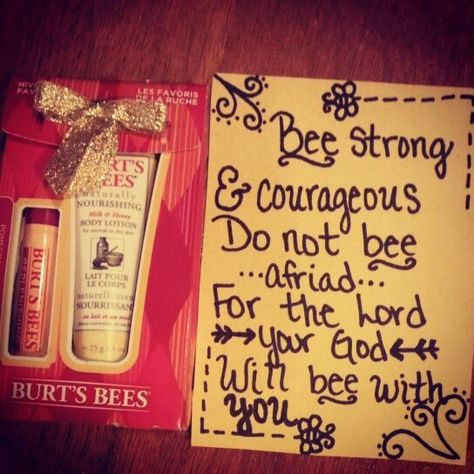 LES FAVORIS
DE LA RUCHE
BURT'S
BEES
naturally
NOURISHING
Milk & Honey
BODY LOTION
for normal to dry skin
LAIT POUR
LE CORPS
naturellement
NOURRISSANT
au lait et au miel
BURT'S BEES
BURT'S BEES
Bee strong
& courageous
Do not bee
...afriad...
For the Lord
your God
Will bee with
you